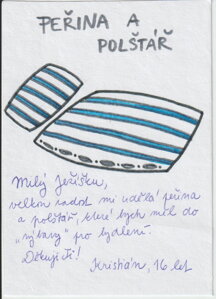 PEŘINA A
POLŠTÁŘ
Milý Ježíšku,
velkou radost mi udělá peřina
a polštář, které bych měl do
„výbavy" pro bydlení.
Děkuji Ti!
Kristián, 16 let